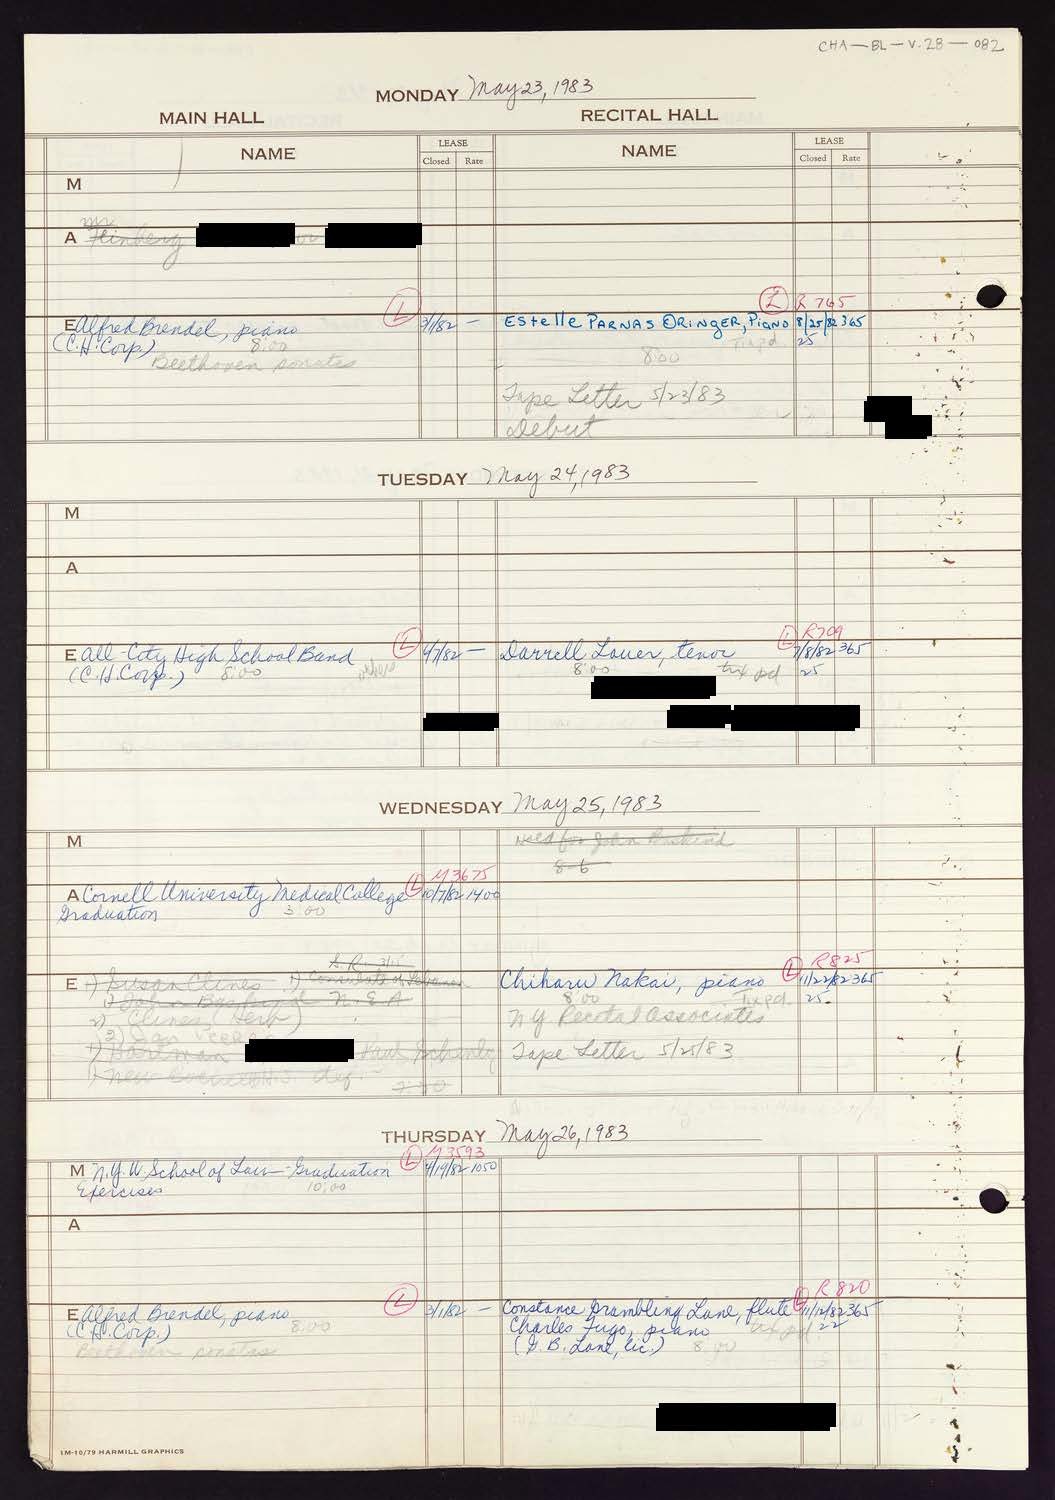 CHA-BL-V.28-082
MONDAY May 23, 1983
MAIN HALL
RECITAL HALL
NAME
LEASE
Closed Rate
NAME
LEASE
Closed Rate
M
mr
A Feinberg or
L
L R 765
E Alfred Brendel, piano 3/1/82 —
Estelle PARNAS ORINGER, Piano 8/25/82 365
(C.H. Corp.) 8:00
Tx pd. 25
Beethoven sonatas
8:00
Tape Letter 5/23/83
Debut
TUESDAY May 24, 1983
M
A
L
L R709
E All-City High School Band 4/7/82 —
Darrell Lauer, tenor 7/8/82 365
(C.H. Corp.) 8:00
8:00 tax pd 25
WEDNESDAY May 25, 1983
M
Held for John
8-6
L M3675
A Cornell University Medical College 10/7/82 1400
Graduation 3:00
S.R. 3/15
L R825
E 1) Susan Clines 1) Consulate of Lebanon
Chiharu Nakai, piano 11/22/82 365
N.E.A
8:00 Tx pd. 25
2) Clines (Herb)
N.Y. Recital Associates
1) Hartman Paul
Tape Letter 5/25/83
1) New H.S.
7:30
THURSDAY May 26, 1983
L M3593
M N.Y.U School of Law—Graduation 4/19/82 1050
Exercises 10:00
A
L
L R820
E Alfred Brendel, piano 3/1/82 —
Constance Grambling Lane, flute 11/12/82 365
(C.H. Corp.) 8:00
Charles Fugo, piano tx pd 22
Beethoven sonatas
(G.B. Lane, lic.) 8:00
1M-10/79 HARMILL GRAPHICS